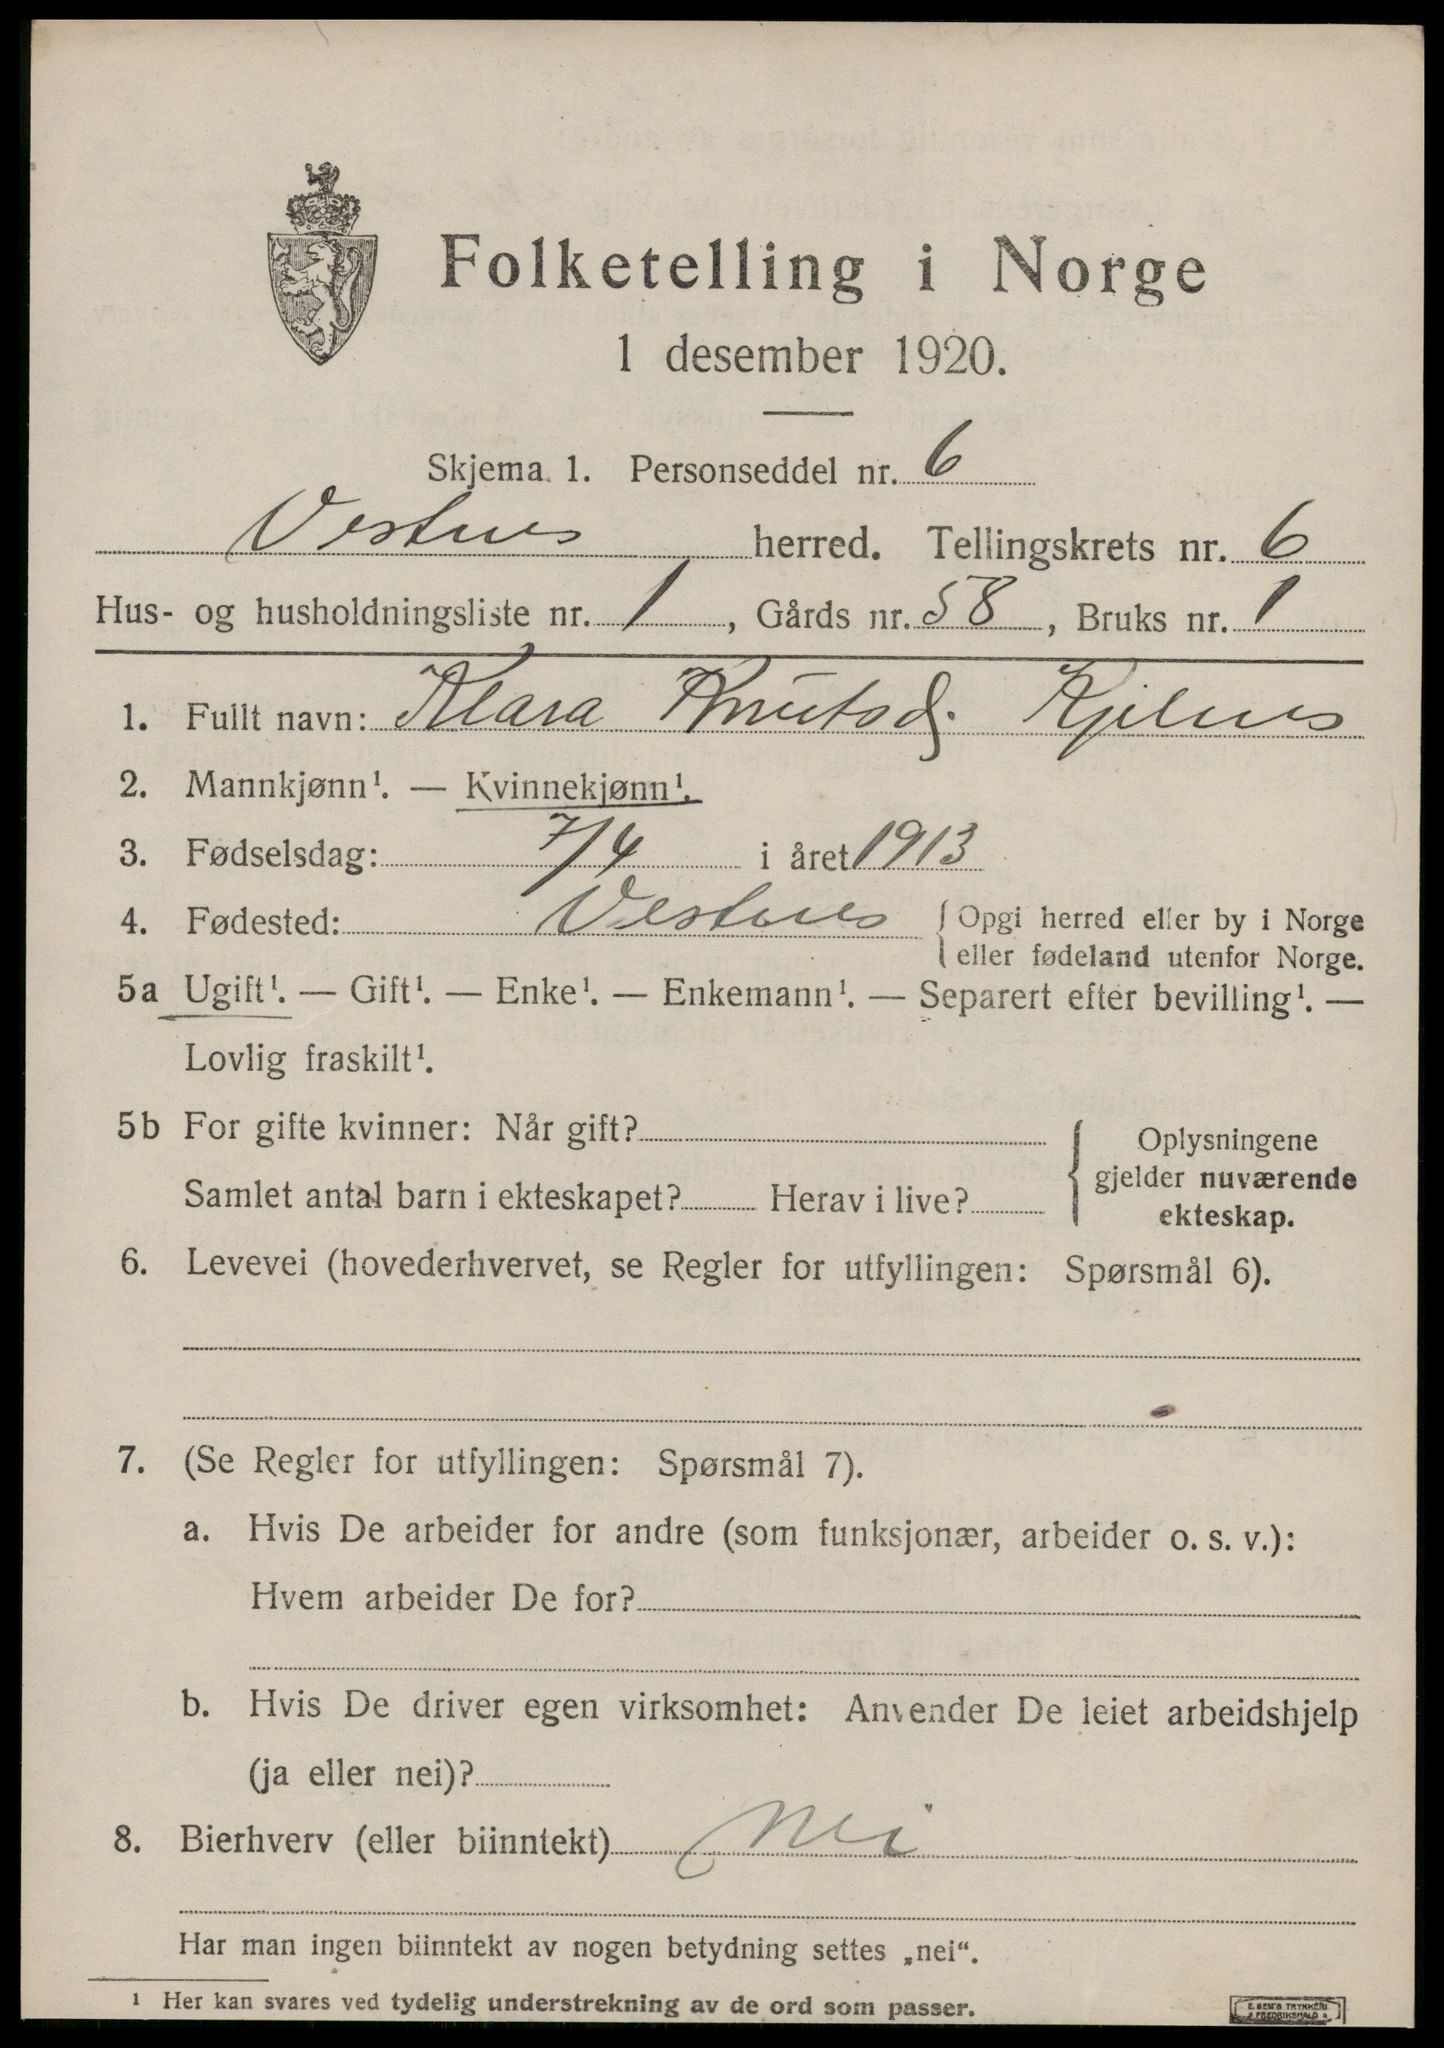 Folketelling i Norge
1 desember 1920.
Skjema 1. Personseddel nr. 6
Vestnes herred. Tellingskrets nr. 6
Hus- og husholdningsliste nr. 1, Gårds nr. 58, Bruks nr. 1
1. Fullt navn: Klara Knutsd. Kjelnes
2. Mannkjønn¹. — Kvinnekjønn¹.
3. Fødselsdag: 7/4 i året 1913
4. Fødested: Vestnes { Opgi herred eller by i Norge
eller fødeland utenfor Norge.
5a Ugift¹. — Gift¹. — Enke¹. — Enkemann¹. — Separert efter bevilling¹. —
Lovlig fraskilt¹.
5b For gifte kvinner: Når gift?
Samlet antal barn i ekteskapet? Herav i live?
Oplysningene
gjelder nuværende
ekteskap.
6. Levevei (hovederhvervet, se Regler for utfyllingen: Spørsmål 6).
7. (Se Regler for utfyllingen: Spørsmål 7).
a. Hvis De arbeider for andre (som funksjonær, arbeider o. s. v.):
Hvem arbeider De for?
b. Hvis De driver egen virksomhet: Anvender De leiet arbeidshjelp
(ja eller nei)?
8. Bierhverv (eller biinntekt) Nei
Har man ingen biinntekt av nogen betydning settes „nei“.
¹ Her kan svares ved tydelig understrekning av de ord som passer.
E. SEM'S TRYKKERI
FREDRIKSHALD